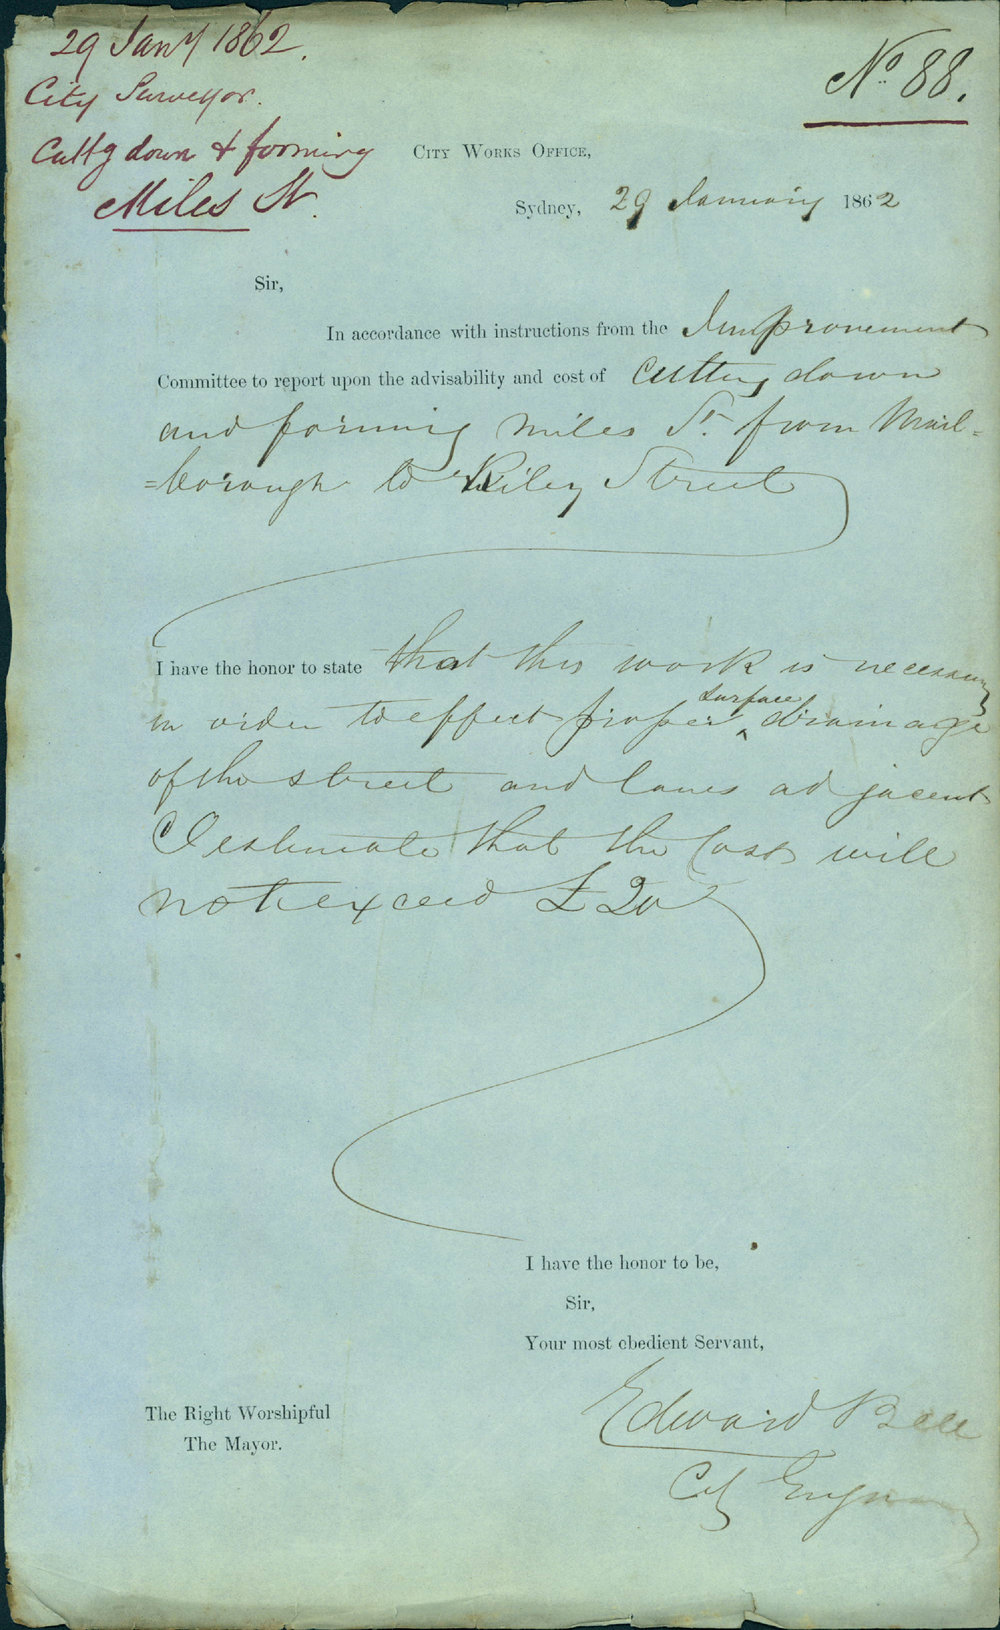 29 Jany 1862.
City Surveyor.
Cuttg down & forming
Miles St.
No 88.
City Works Office,
Sydney, 29 January 1862
Sir,
In accordance with instructions from the Improvement
Committee to report upon the advisability and cost of Cutting down
and forming Miles St. from Marl=
=borough to Riley Street
I have the honor to state that this work is necessary
in order to effect proper surface drainage
of the street and lanes adjacent
I estimate that the Cost will
not exceed £20
I have the honor to be,
Sir,
Your most obedient Servant,
Edward Bell
City Engineer
The Right Worshipful
The Mayor.